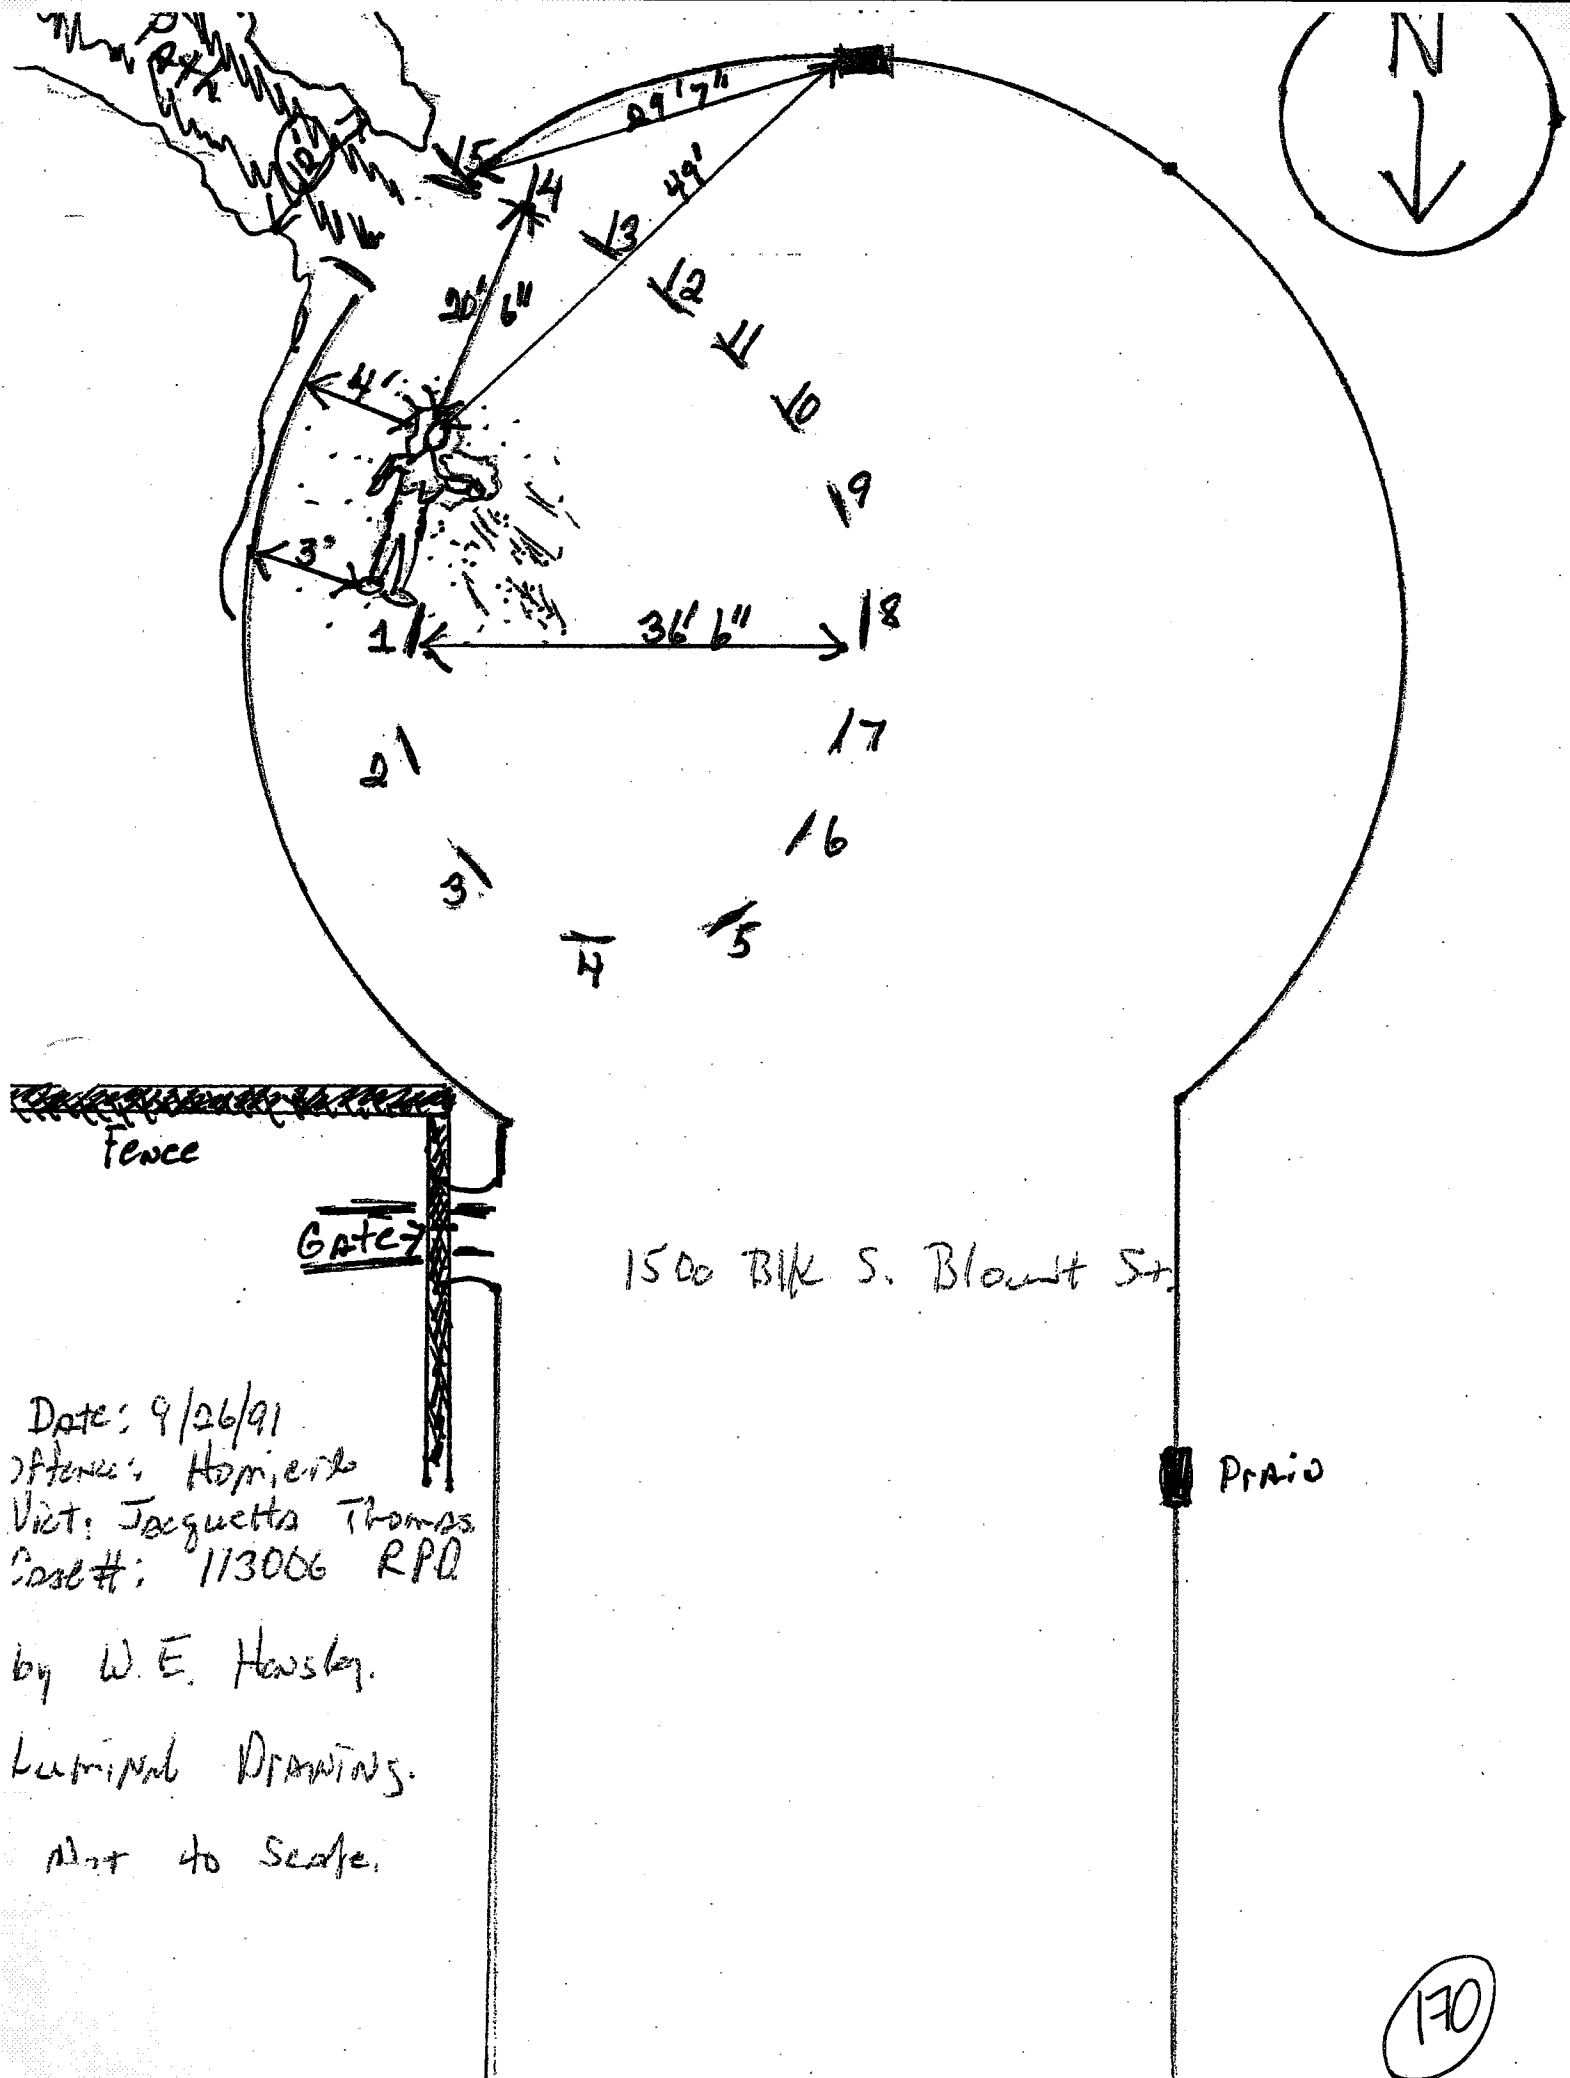 N
29' 7"
15
14
49'
13
12
20' 6"
11
10
4'
9
3'
8
36' 6"
1
7
2
6
3
5
4
Fence
Gate
1500 Blk S. Blount St.
Date: 9/26/91
Drain
Offense: Homicide
Vict: Jacquetta Thomas
Case#: 113006 RPD
by W. E. Hensley.
Luminal Drawing.
Not to Scale.
170